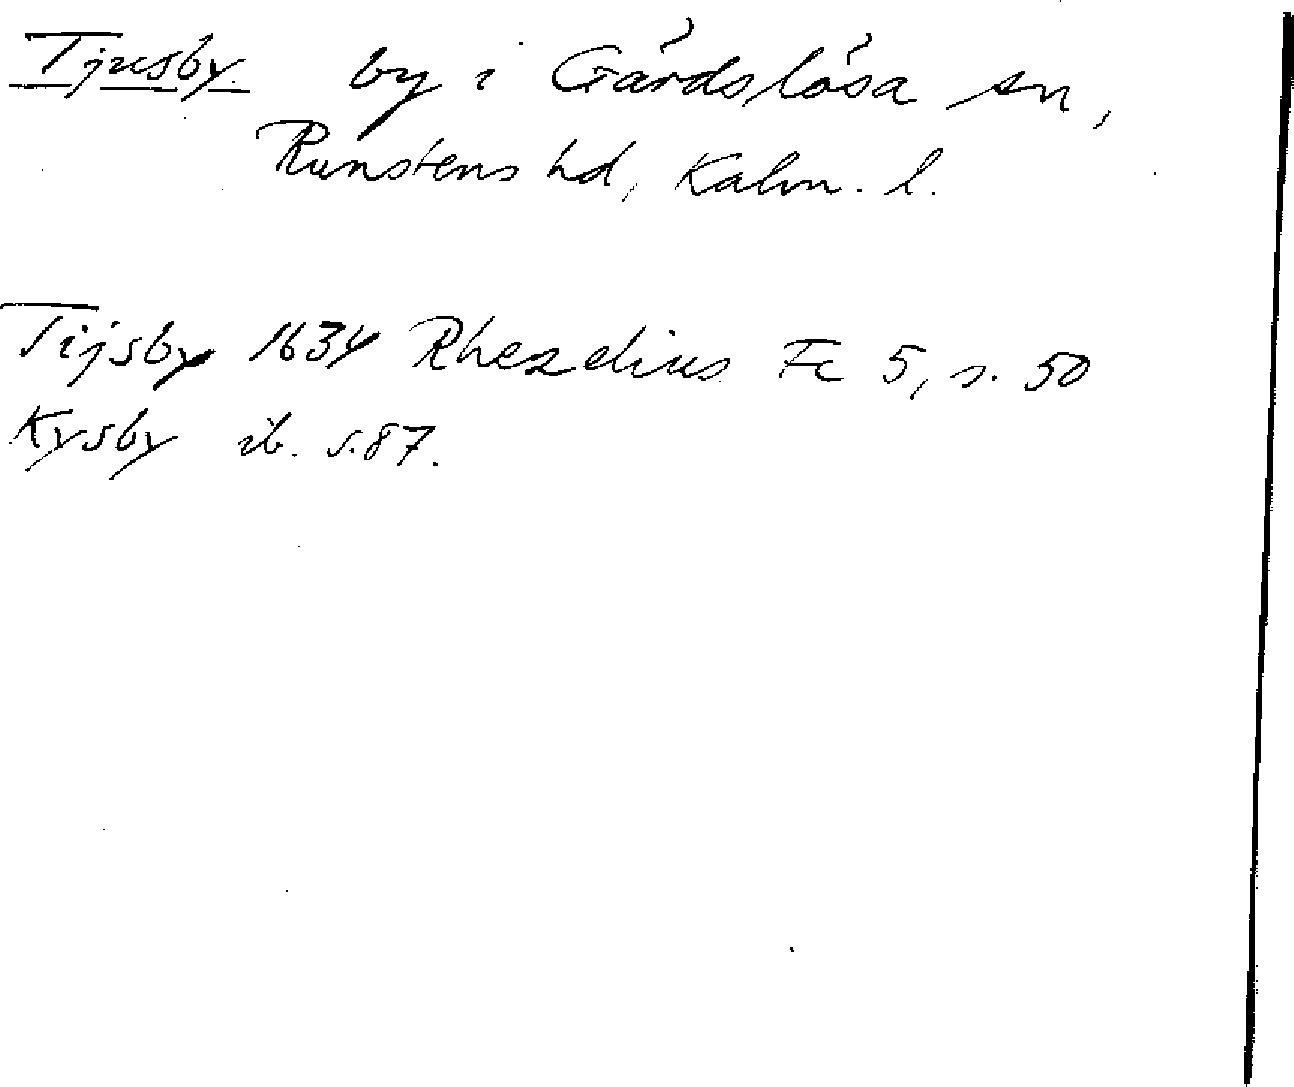 Tjusby. by i Gärdslösa sn,
Runstens hd, Kalm. l.
Tijsby 1634 Rhezelius Fc 5, s. 50
Kysby ib. s. 87.